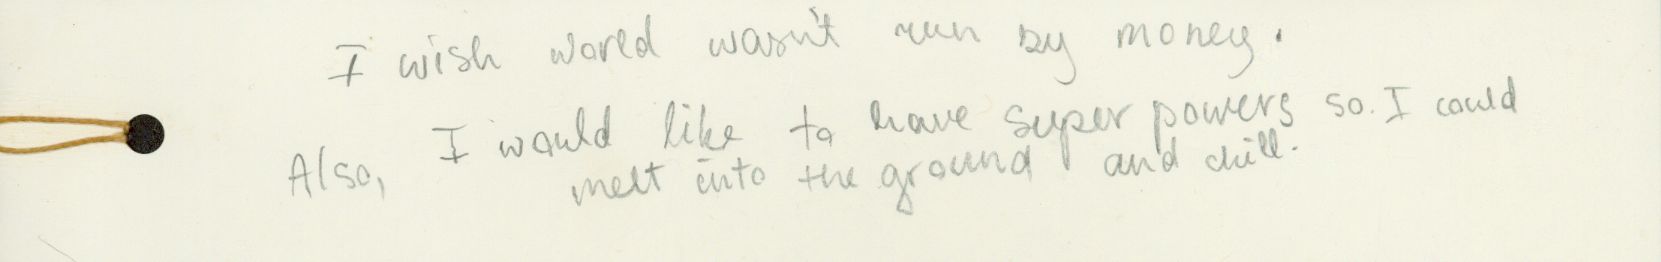 I wish world wasn't run by money.
Also, I would like to have super powers so. I could
melt into the ground and chill.